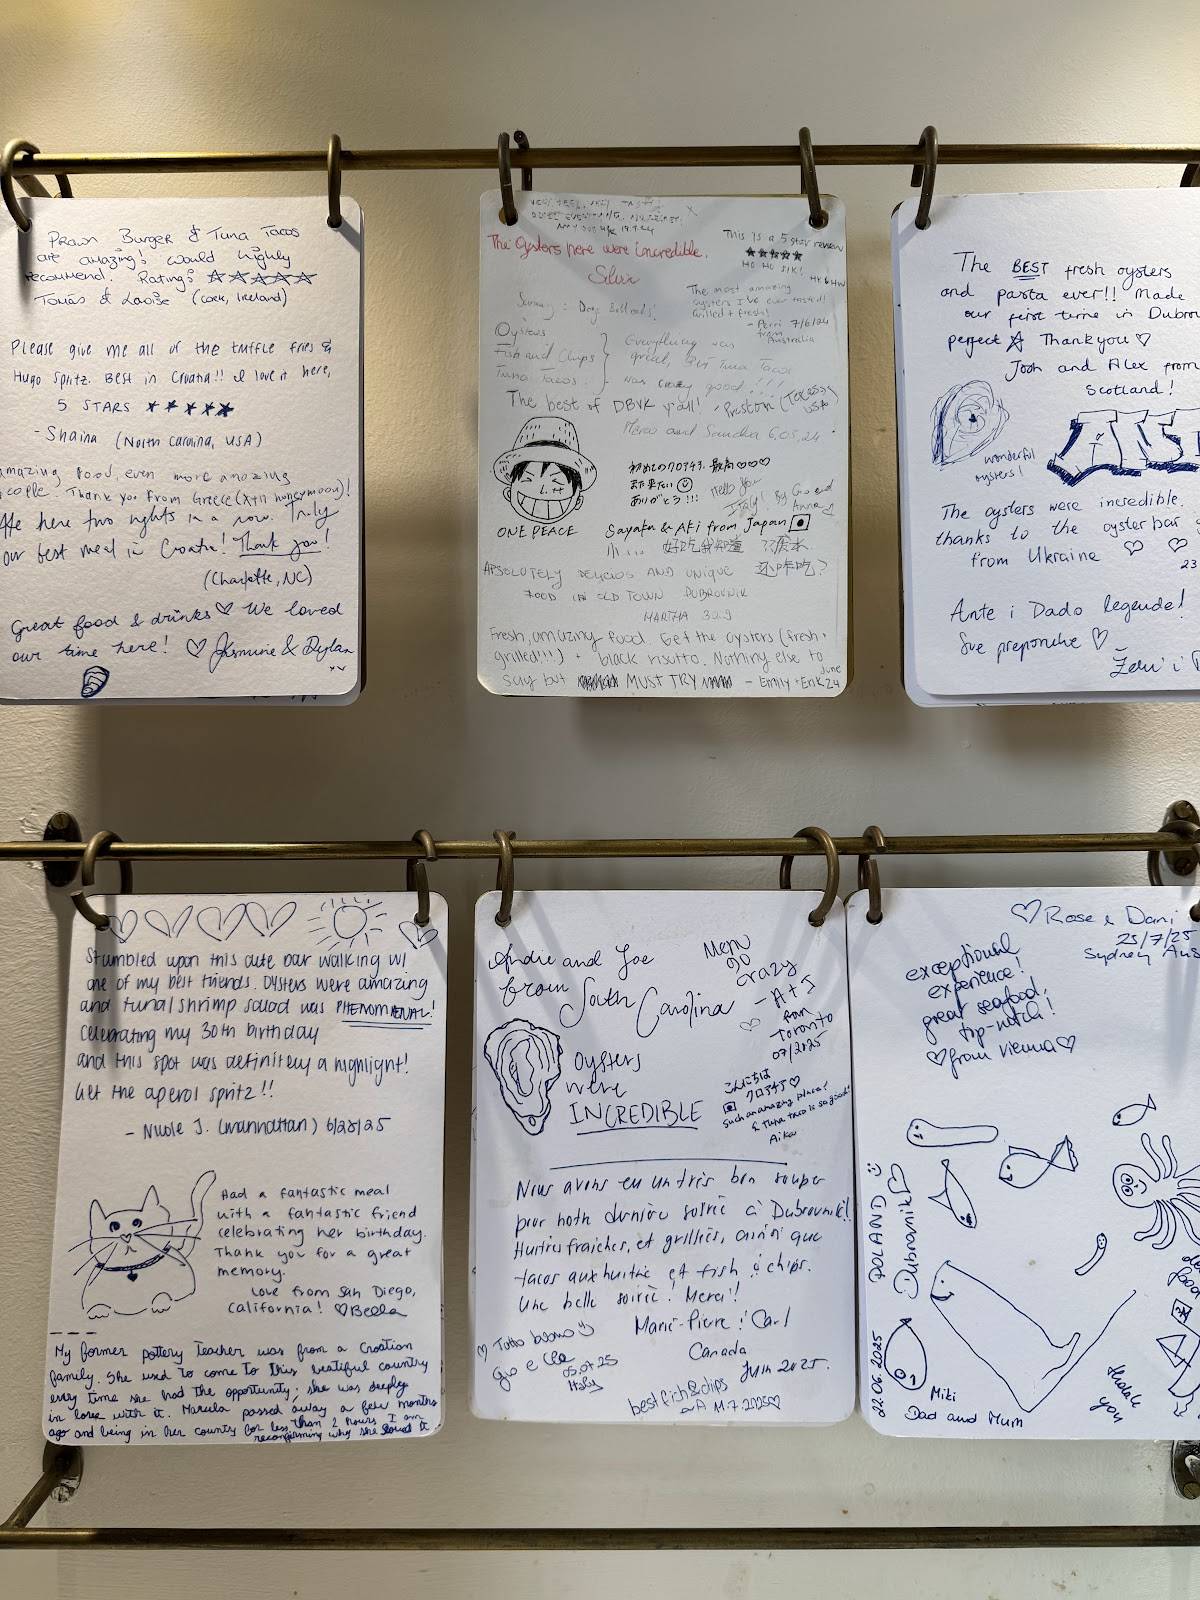 Prawn Burger & Tuna Tacos
are amazing! would highly
recommend! Rating: ☆☆☆☆☆
Tomás & Laoise (Cork, Ireland)
Please give me all of the truffle fries &
Hugo Spritz. Best in Croatia!! I love it here,
5 STARS ★★★★★
- Shaina (North Carolina, USA)
amazing food, even more amazing
people. Thank you from Greece (x+n honeymoon)!
here two nights in a row. Truly
our best meal in Croatia! Thank you!
(Charlotte, NC)
Great food & drinks ♡ We loved
our time here! ♡ Jasmine & Dylan
The Oysters here were incredible.
Silvia
This is a 5 star review
★★★★★
The most amazing
oysters I've ever tasted!
Grilled + fresh!
- Perri 7/6/24
from Australia
Oysters
Fish and Chips
Tuna Tacos
Everything was
great, But Tuna Tacos
was crazy good!!!
The best of DBVK y'all! - Preston (Texas, USA)
Marco and Sandra 6.05.24
初めてのクロアチア、最高♡♡♡
また来たい☺
ありがとう!!!
Sayaka & Aki from Japan
ONE PEACE
好吃我知道
还咔吃?
ABSOLUTELY DELICIOS AND UNIQUE
FOOD IN OLD TOWN DUBROVNIK
MARTHA 30.9
Fresh, amazing food. Get the oysters (fresh +
grilled!!!) + black risotto. Nothing else to
say but MUST TRY - Emily + Erik June 24
The BEST fresh oysters
and pasta ever!! Made
our first time in Dubro
perfect ☆ Thank you ♡
Josh and Alex from
Scotland!
wonderful
oysters!
The oysters were incredible.
thanks to the oyster bar
from Ukraine ♡ ♡
23
Ante i Dado legende!
Sve preporuke ♡
Stumbled upon this cute bar walking w/
one of my best friends. Oysters were amazing
and tuna/shrimp salad was PHENOMENAL!
Celebrating my 30th birthday
and this spot was definitely a highlight!
Get the aperol spritz!!
- Nicole J. (Manhattan) 6/28/25
Had a fantastic meal
with a fantastic friend
celebrating her birthday.
Thank you for a great
memory.
Love from San Diego,
California! ♡ Bella
My former pottery teacher was from a Croatian
family. She used to come to this beatiful country
every time she had the opportunity; she was deeply
in love with it. Marcela passed away a few months
ago and being in her country for less than 2 hours I am
reconfirming why she loved it
Andie and Joe
from South Carolina
Menu
go
crazy
- A + J
from
Toronto
07/2025
oysters
were
INCREDIBLE
こんにちは
クロアチア♡
such an amazing place!
& Tuna taco is so good!
Aika
Nous avons eu un très bon souper
pour notre dernière soirée à Dubrovnik!!
Huitres fraiches, et grillées, ainsi que
tacos aux huitre et fish & chips.
Une belle soirée! Merci!!
Marie-Pierre & Carl
Canada
Juin 2025.
♡ Tutto buono ☺
05.07.25
Italy
best fish & chips
~A 11.7.2025♡
♡ Rose & Dani
25/7/25
Sydney Aus
exceptional
experience!
great seafood.
top-notch!
♡ from Vienna ♡
POLAND ☺
Dubrovnik ♡
22.06.2025
Miki
Dad and Mum
you